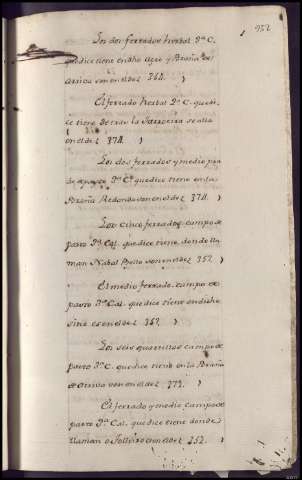 952
Los dos ferrados Hortal 3ª C.
que dice tiene en dho Agro y Braña de
arriva son en el de 2 364.
El ferrado Hortal 2ª C. que di-
ce tiene detras la se alla
en el de 2 374.
Los dos ferrados y medio
de pasto 3ª C. que dice tiene en la
Braña Redonda son en el de 2 374.
Los cinco ferrados campo de
pasto 3ª Cal. que dice tiene donde lla
man Nabal son en el de 2 352.
El medio ferrado campo de
pasto 3ª Cal. que dice tiene en dicho
sitio es en el de 2 362.
Los seis quartillos campo de
pasto 3ª C. que dice tiene en la Braña
de arriva son en el de 2 373.
El ferrado y medio campo de
pasto 3ª Cal. que dice tiene donde
llaman o son en el de 2 352.